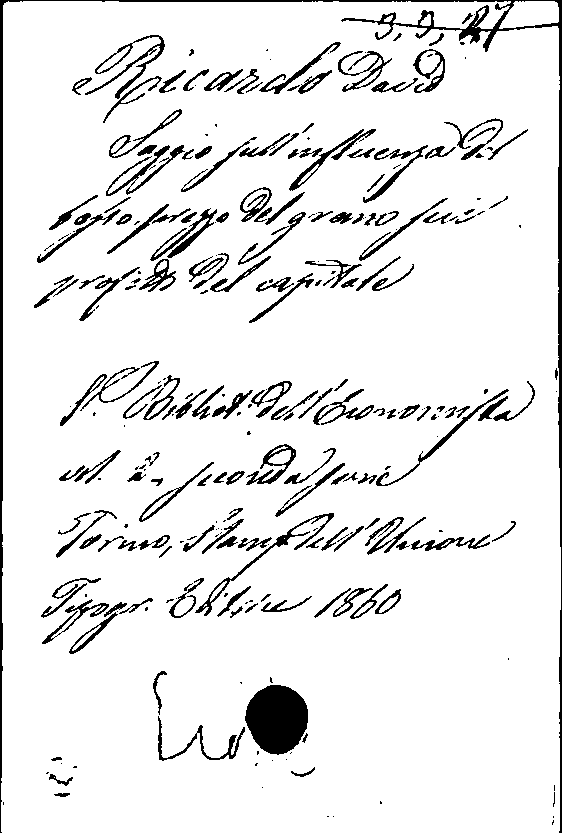 3, 3, 27
Ricardo David
Saggio sull'influenza del
basso prezzo del grano sui
profitti del capitale
V. Bibliot. dell'Economista
vol. 2, seconda serie
Torino, Stamp. dell'Unione
Tipogr. Editrice 1860